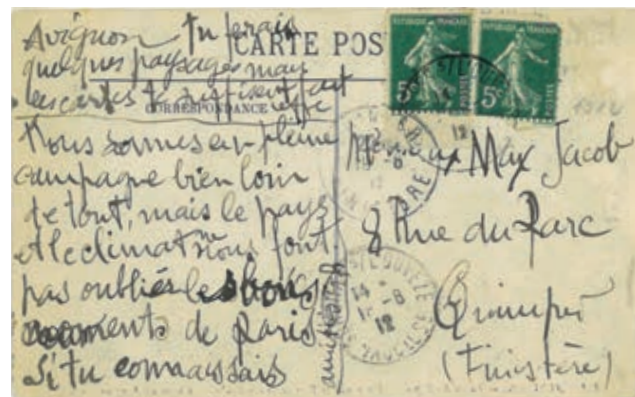 Avignon tu ferais
quelques paysages mais
les cartes
CARTE POS
CORRESPONDANCE
Nous sommes en pleine
campagne bien loin
de tout, mais le pays
et le climat ne nous font
pas oublier les bons
moments de Paris
Si tu connaissais
REPUBLIQUE FRANÇAISE
5c
REPUBLIQUE FRANÇAISE
5c
Monsieur Max Jacob
8 Rue du Parc
Quimper
(Finistère)
ST LOUP
12
FINISTERE
14
12
VAUCLUSE